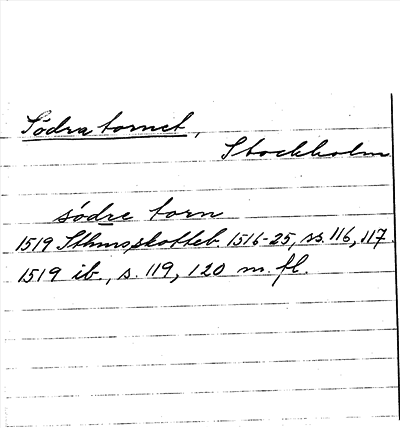 Södra tornet,
Stockholm
södre torn
1519 Sthms skotteb. 1516-25, ss. 116, 117.
1519 ib., s. 119, 120 m. fl.